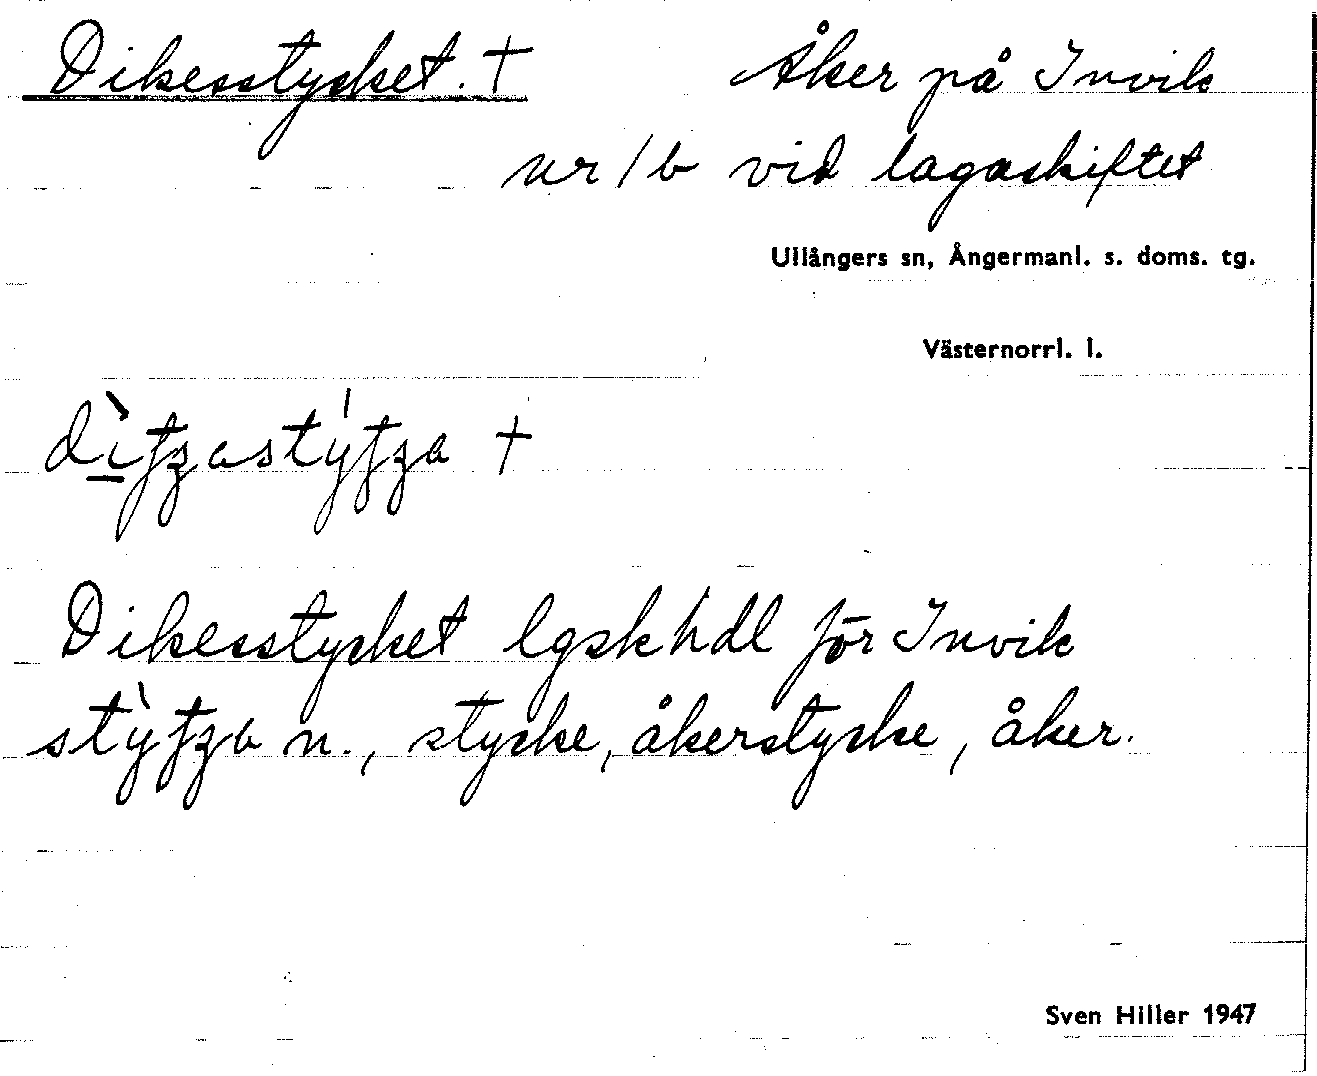 Dikesstycket. † Åker på Invik
nr 1b vid lagaskiftet
Ullångers sn, Ångermanl. s. doms. tg.
Västernorrl. l.
†
Dikesstycket lgskhdl för Invik
n., stycke, åkerstycke, åker.
Sven Hiller 1947